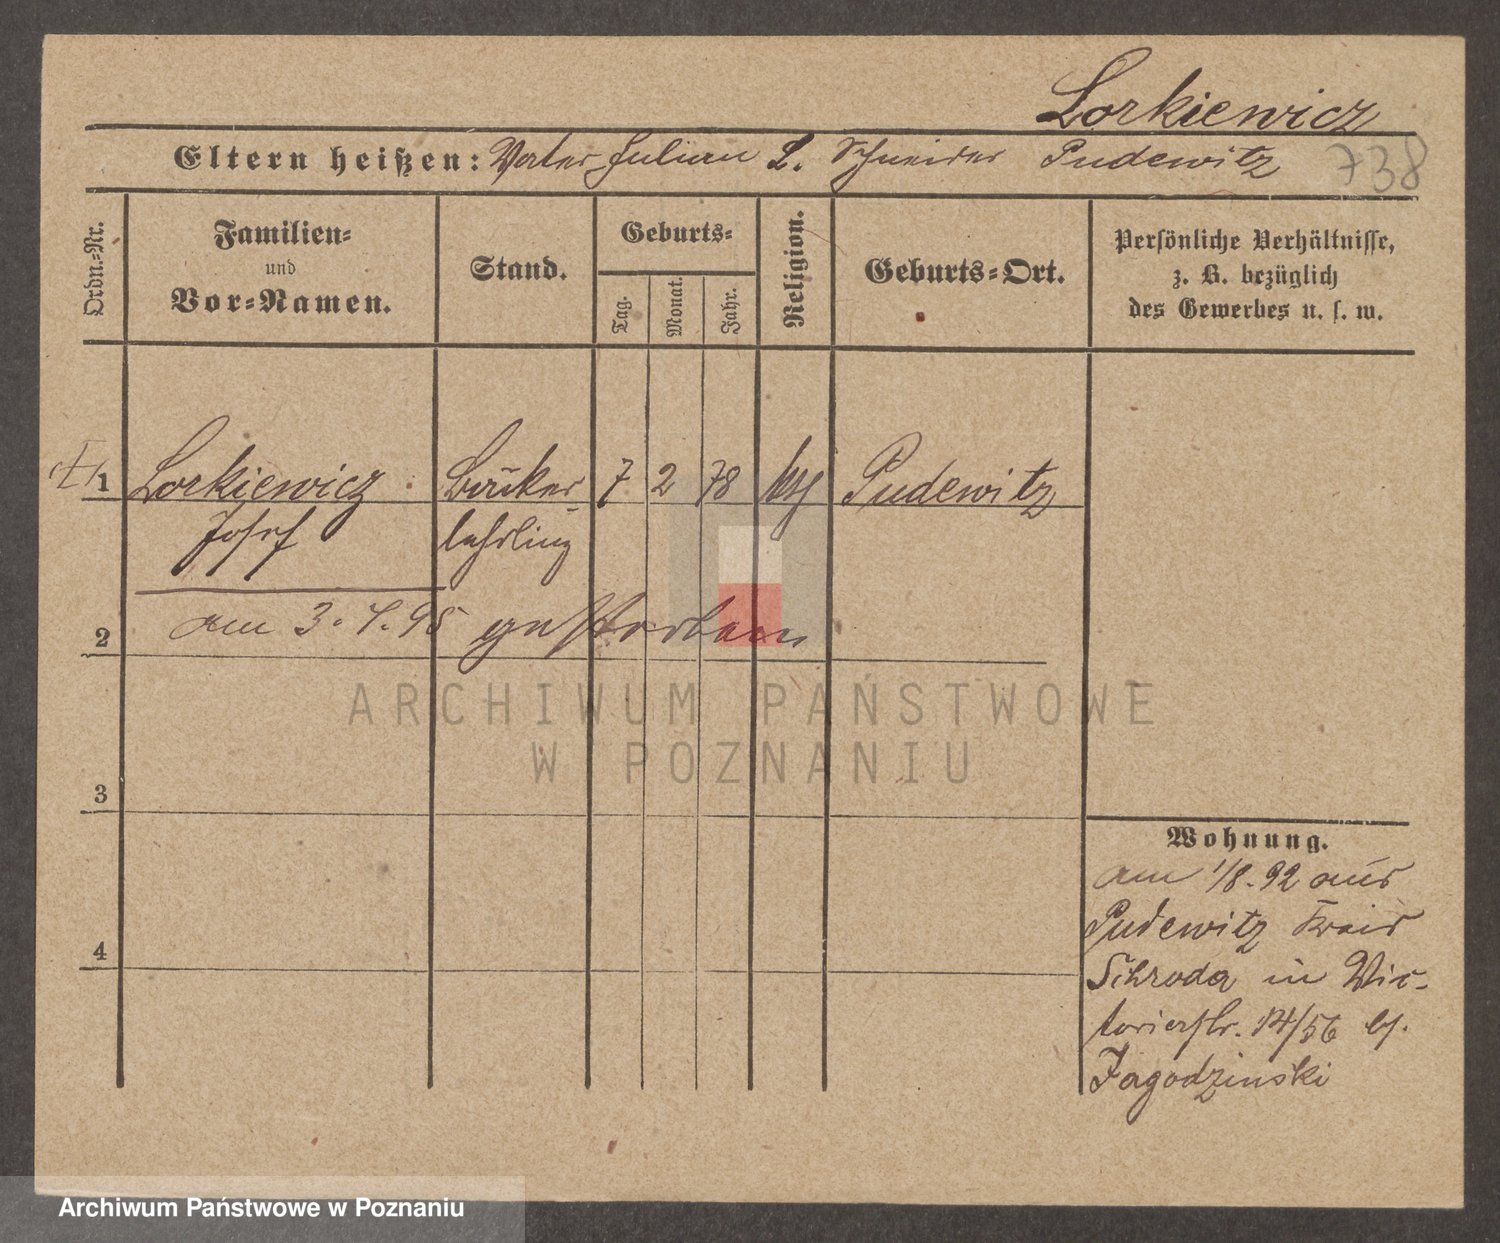 Lorkiewicz
Eltern heißen: Vater Julian L. Schneider Pudewitz 738
Ordn.-Nr.
Familien-
und
Vor-Namen.
Stand.
Geburts-
Tag.
Monat.
Jahr.
Religion.
Geburts-Ort.
Persönliche Verhältnisse,
z. B. bezüglich
des Gewerbes u. s. w.
1 Lorkiewicz Bäcker- 7 2 78 kth Pudewitz
Josef lehrling
am 3. 7. 95 gestorben
2
ARCHIWUM PAŃSTWOWE
W POZNANIU
3
4
Wohnung.
am 1/8. 92 aus
Pudewitz Kreis
Schroda in Vic-
toriastr. 14/56 bj.
Jagodzinski
Archiwum Państwowe w Poznaniu